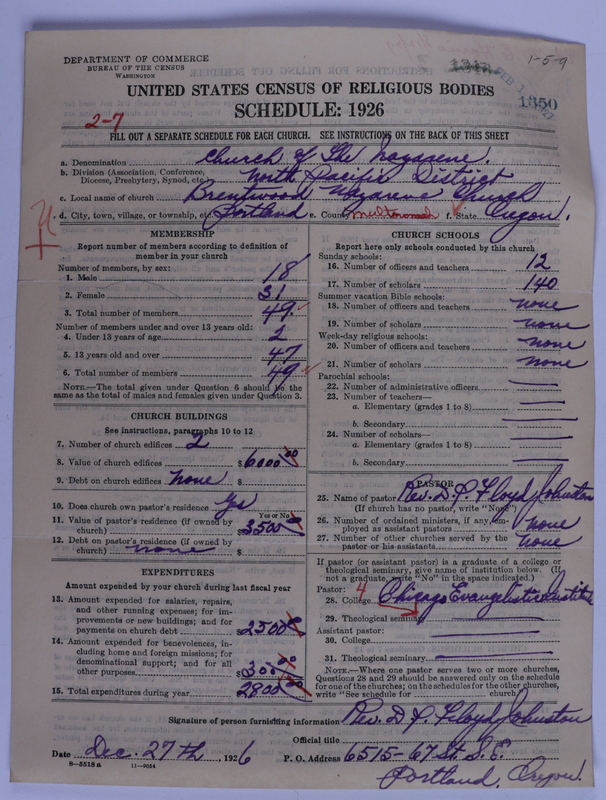 1-5-9
DEPARTMENT OF COMMERCE
BUREAU OF THE CENSUS
WASHINGTON
1350
UNITED STATES CENSUS OF RELIGIOUS BODIES
SCHEDULE: 1926
2-7
FILL OUT A SEPARATE SCHEDULE FOR EACH CHURCH. SEE INSTRUCTIONS ON THE BACK OF THIS SHEET
a. Denomination Church of The Nazarene.
b. Division (Association, Conference, Diocese, Presbytery, Synod, etc.) North Pacific District
c. Local name of church Brentwood Nazarene Church
d. City, town, village, or township, etc. Portland e. County Multnomah f. State Oregon.
MEMBERSHIP
Report number of members according to definition of
member in your church
Number of members, by sex:
1. Male 18
2. Female 31
3. Total number of members 49
Number of members under and over 13 years old:
4. Under 13 years of age 2
5. 13 years old and over 47
6. Total number of members 49
NOTE.—The total given under Question 6 should be the
same as the total of males and females given under Question 3.
CHURCH BUILDINGS
See instructions, paragraphs 10 to 12
7. Number of church edifices 2
8. Value of church edifices $6000 00
9. Debt on church edifices none $
10. Does church own pastor's residence yes
Yes or No
11. Value of pastor's residence (if owned by
church) $3500 00
12. Debt on pastor's residence (if owned by
church) none $
EXPENDITURES
Amount expended by your church during last fiscal year
13. Amount expended for salaries, repairs,
and other running expenses; for im-
provements or new buildings; and for
payments on church debt $2500
14. Amount expended for benevolences, in-
cluding home and foreign missions; for
denominational support; and for all
other purposes $300 00
15. Total expenditures during year 2800 00
CHURCH SCHOOLS
Report here only schools conducted by this church
Sunday schools:
16. Number of officers and teachers 12
17. Number of scholars 140
Summer vacation Bible schools:
18. Number of officers and teachers none
19. Number of scholars none
Week-day religious schools:
20. Number of officers and teachers none
21. Number of scholars none
Parochial schools:
22. Number of administrative officers
23. Number of teachers—
a. Elementary (grades 1 to 8)
b. Secondary
24. Number of scholars—
a. Elementary (grades 1 to 8)
b. Secondary
PASTOR
25. Name of pastor Rev. D. P. Floyd Johnston
(If church has no pastor, write "None")
26. Number of ordained ministers, if any, em-
ployed as assistant pastors none
27. Number of other churches served by the
pastor or his assistants none
If pastor (or assistant pastor) is a graduate of a college or
theological seminary, give name of institution below. (If
not a graduate, write "No" in the space indicated.)
Pastor: 4
28. College Chicago Evangelistic Institute
29. Theological seminary
Assistant pastor:
30. College
31. Theological seminary
NOTE.—Where one pastor serves two or more churches,
Questions 28 and 29 should be answered only on the schedule
for one of the churches; on the schedules for the other churches,
write "See schedule for church."
Signature of person furnishing information Rev. D. P. Floyd Johnston
Official title
Date Dec. 27th, 1926 P. O. Address 6515-67 St. S.E.
8-5518 a 11-9054 Portland, Oregon.